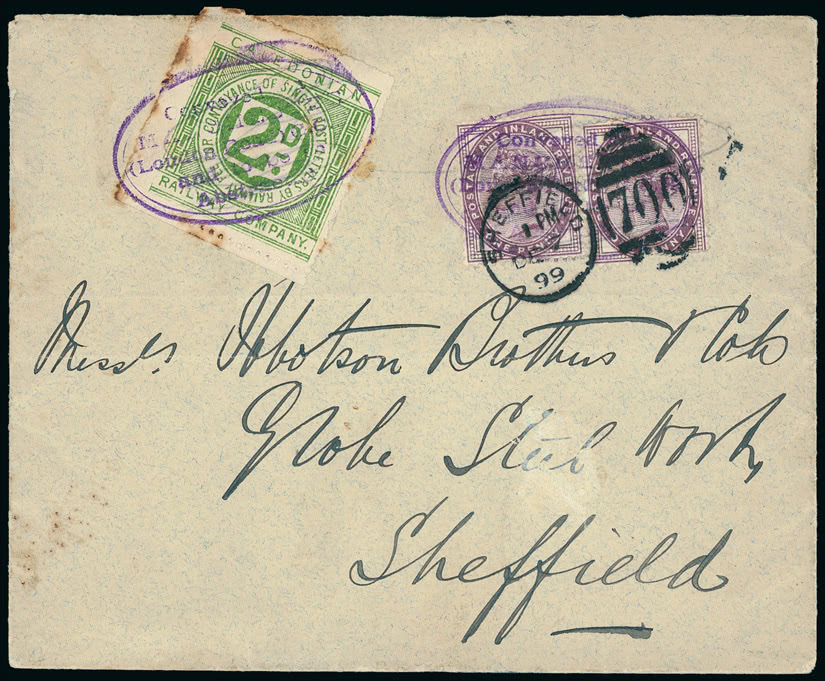 CALEDONIAN
FOR CONVEYANCE OF SINGLE POST LETTERS BY RAILWAY
2D
RAILWAY COMPANY.
(London
and
POSTAGE AND INLAND REVENUE
ONE PENNY
INLAND REVENUE
PENNY
SHEFFIELD
1 PM
DE
99
700
Messrs Ibbotson Brothers & Co
Globe Steel Works
Sheffield